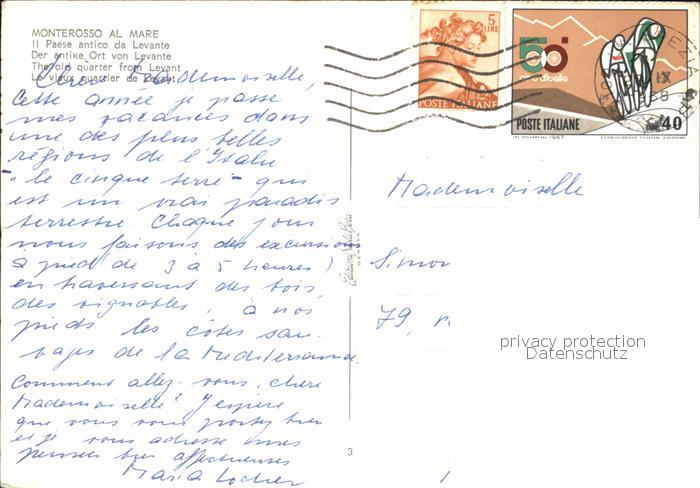 MONTEROSSO AL MARE
Il Paese antico da Levante
Der antike Ort von Levante
The ole quarter from Levant
Le vieux quartier de Levant
Chère Mademoiselle,
Cette année je passe
mes vacances dans
une des plus belles
régions de l'Italie
"le cinque terre" qui
est un vrai paradis
terrestre. Chaque jour
nous faisons des excursions
à pied (de 3 à 5 heures)
en traversant des bois,
des vignobles, à nos
pieds les côtes sau-
vages de la Mediterranée.
Comment allez-vous, chère
Mademoiselle? J'espère
que vous vous portez bien
et je vous adresse mes
pensées bien affectueuses
Maria Locher
5
LIRE
POSTE ITALIANE
50
giro d'italia
POSTE ITALIANE
40
1967
IX
Mademoiselle
Simon
79,
GENOVA
3
privacy protection
Datenschutz